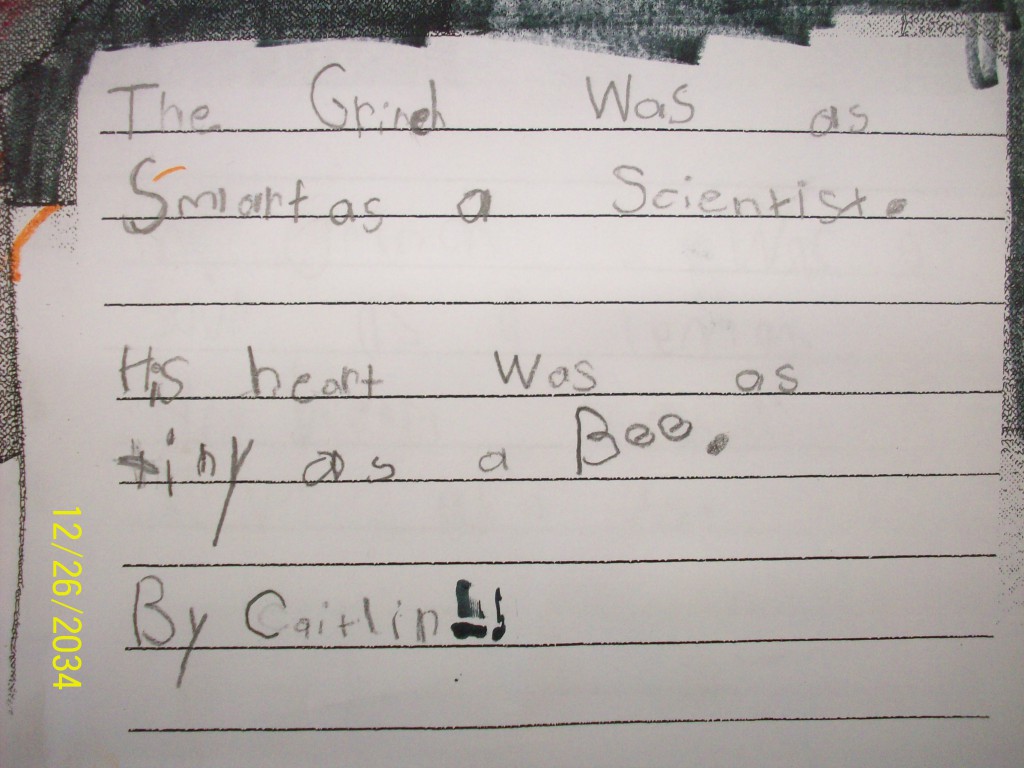 The Grinch Was as
Smart as a Scientist.
His heart Was as
tiny as a Bee.
By Caitlin
12/26/2034